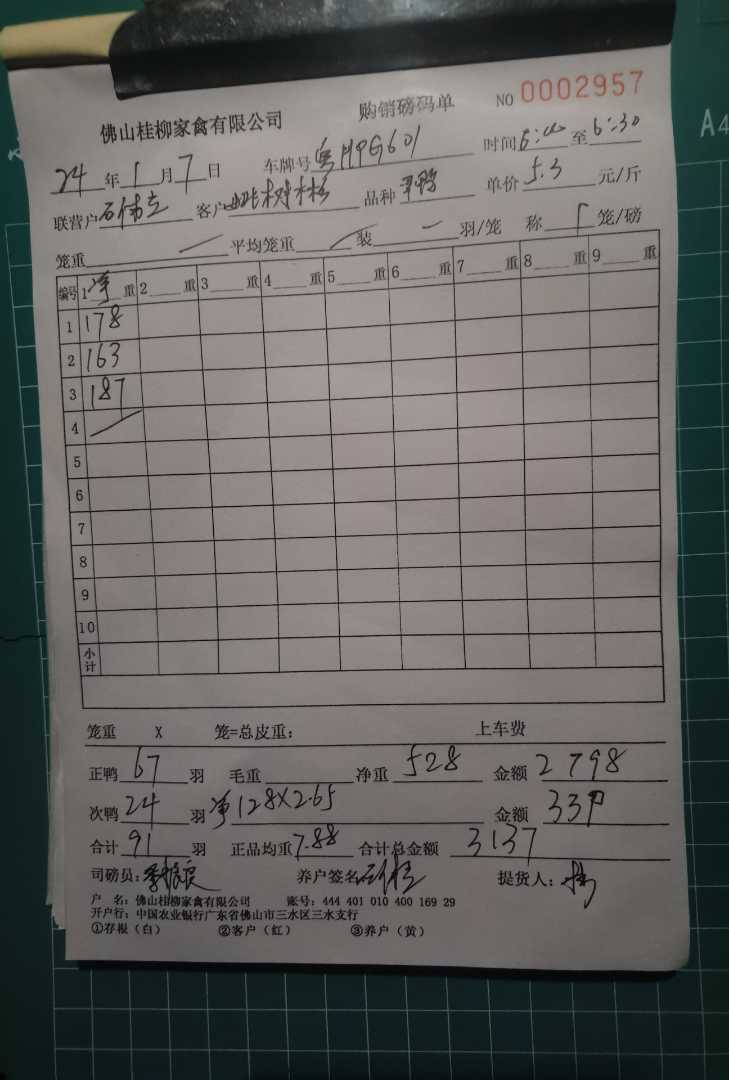 佛山桂柳家禽有限公司 购销磅码单 NO 0002957
24年1月7日 车牌号粤HPG601 时间6:00至6:30
联营户石伟立 客户 品种平鸭 单价5.3元/斤
笼重 平均笼重 装 羽/笼 称 笼/磅
编号 1净重 2重 3重 4重 5重 6重 7重 8重 9重
1 178
2 163
3 187
4
5
6
7
8
9
10
小计
笼重 X 笼=总皮重: 上车费
正鸭67羽 毛重 净重528 金额2798
次鸭24羽 净128X2.65 金额339
合计91羽 正品均重7.88 合计总金额3137
司磅员: 养户签名 提货人:
户 名: 佛山桂柳家禽有限公司 账号: 444 401 010 400 169 29
开户行: 中国农业银行广东省佛山市三水区三水支行
①存根(白) ②客户(红) ③养户(黄)
A4